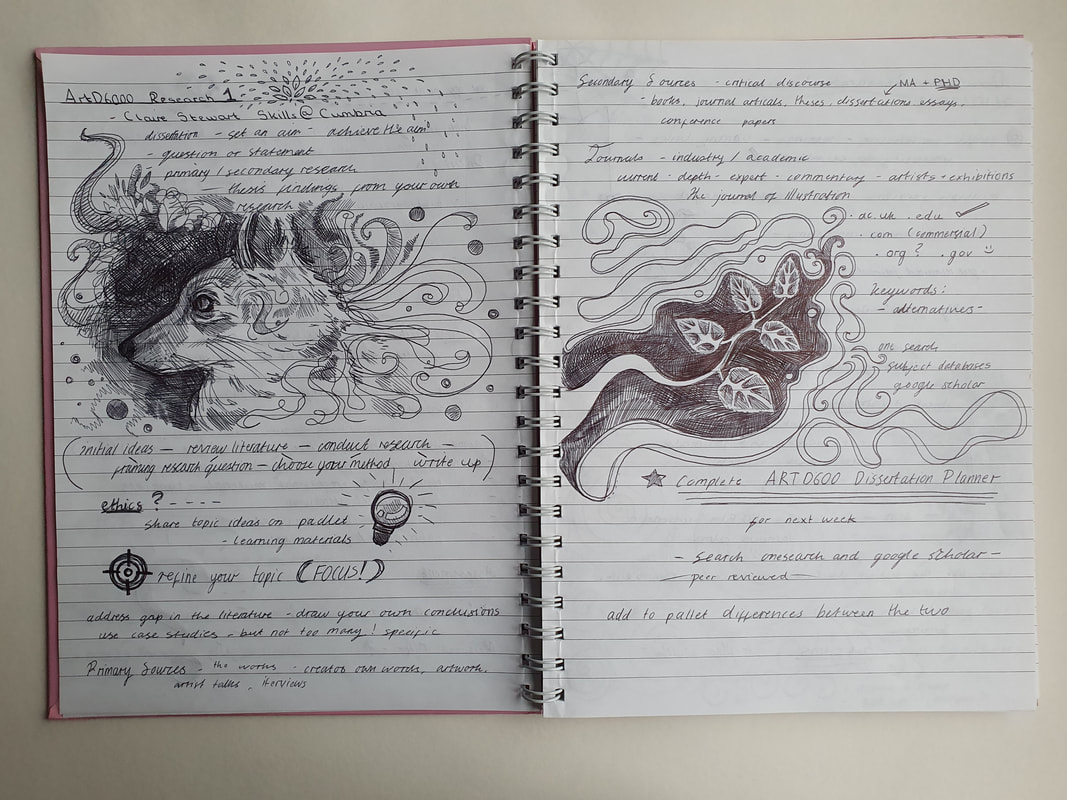 ArtD6000 Research 1
- Clare Stewart Skills@Cumbria
dissertation - set an aim - achieve the aim
- question or statement
primary / secondary research
- thesis findings from your own
research
(initial ideas — review literature — conduct research —
priming research question — choose your method write up)
ethics ? - - - -
share topic ideas on padlet
- learning materials
refine your topic (FOCUS!)
address gap in the literature - draw your own conclusions
use case studies - but not too many! specific
Primary Sources - the works - creators own words, artwork,
artist talks, iterviews
Secondary Sources - critical discourse MA + PHD
- books, journal articals, theses, dissertations essays,
conference papers
Journals - industry / academic
current - depth - expert - commentary - artists + exhibitions
The journal of Illustration
. ac.uk . edu ✓
. com (commersial)
. org ? . gov :)
keywords:
- alternatives -
one search
subject databases
google scholar
★ Complete ARTD600 Dissertation Planner
for next week
- search onesearch and google scholar -
peer reviewed
add to pallet differences between the two